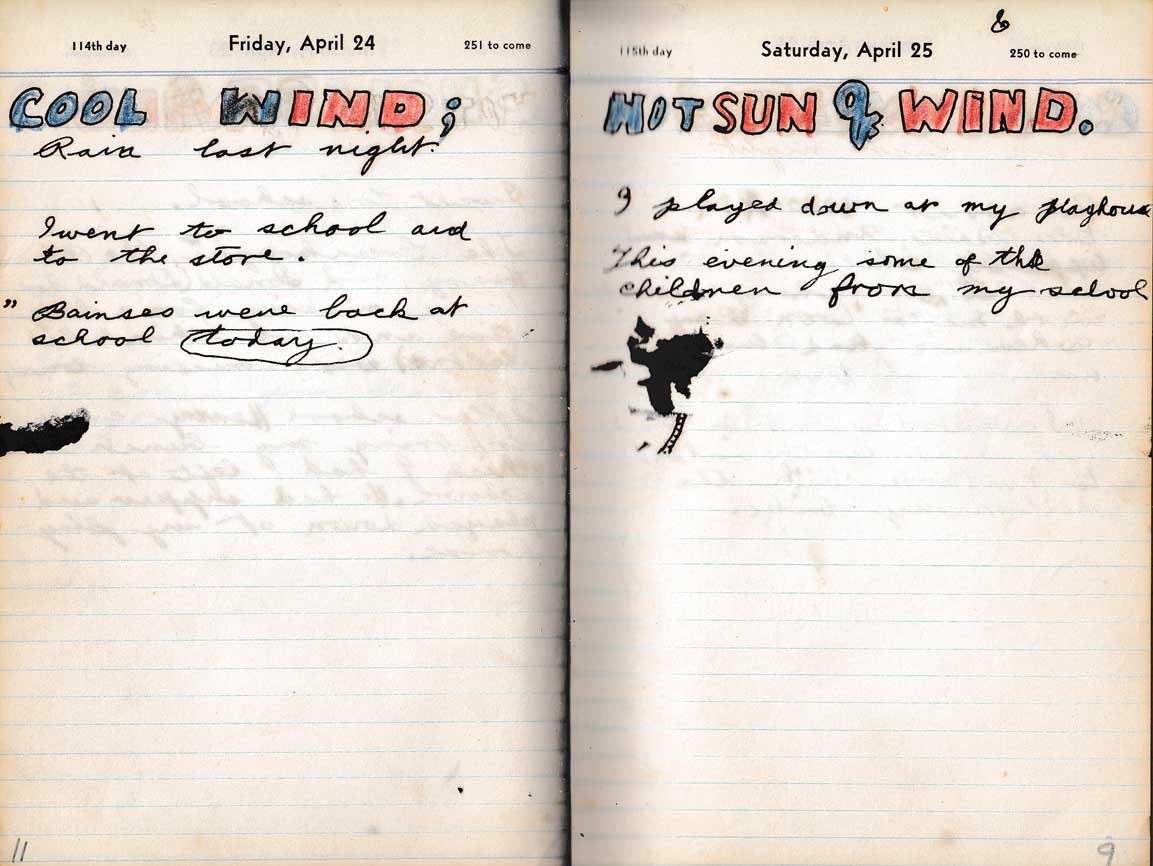 114th day Friday, April 24 251 to come
COOL WIND;
Rain last night.
I went to school and
to the store.
" Bainses were back at
school today.
11
&
115th day Saturday, April 25 250 to come
HOT SUN & WIND.
I played down at my playhouse
This evening some of the
children from my school
9